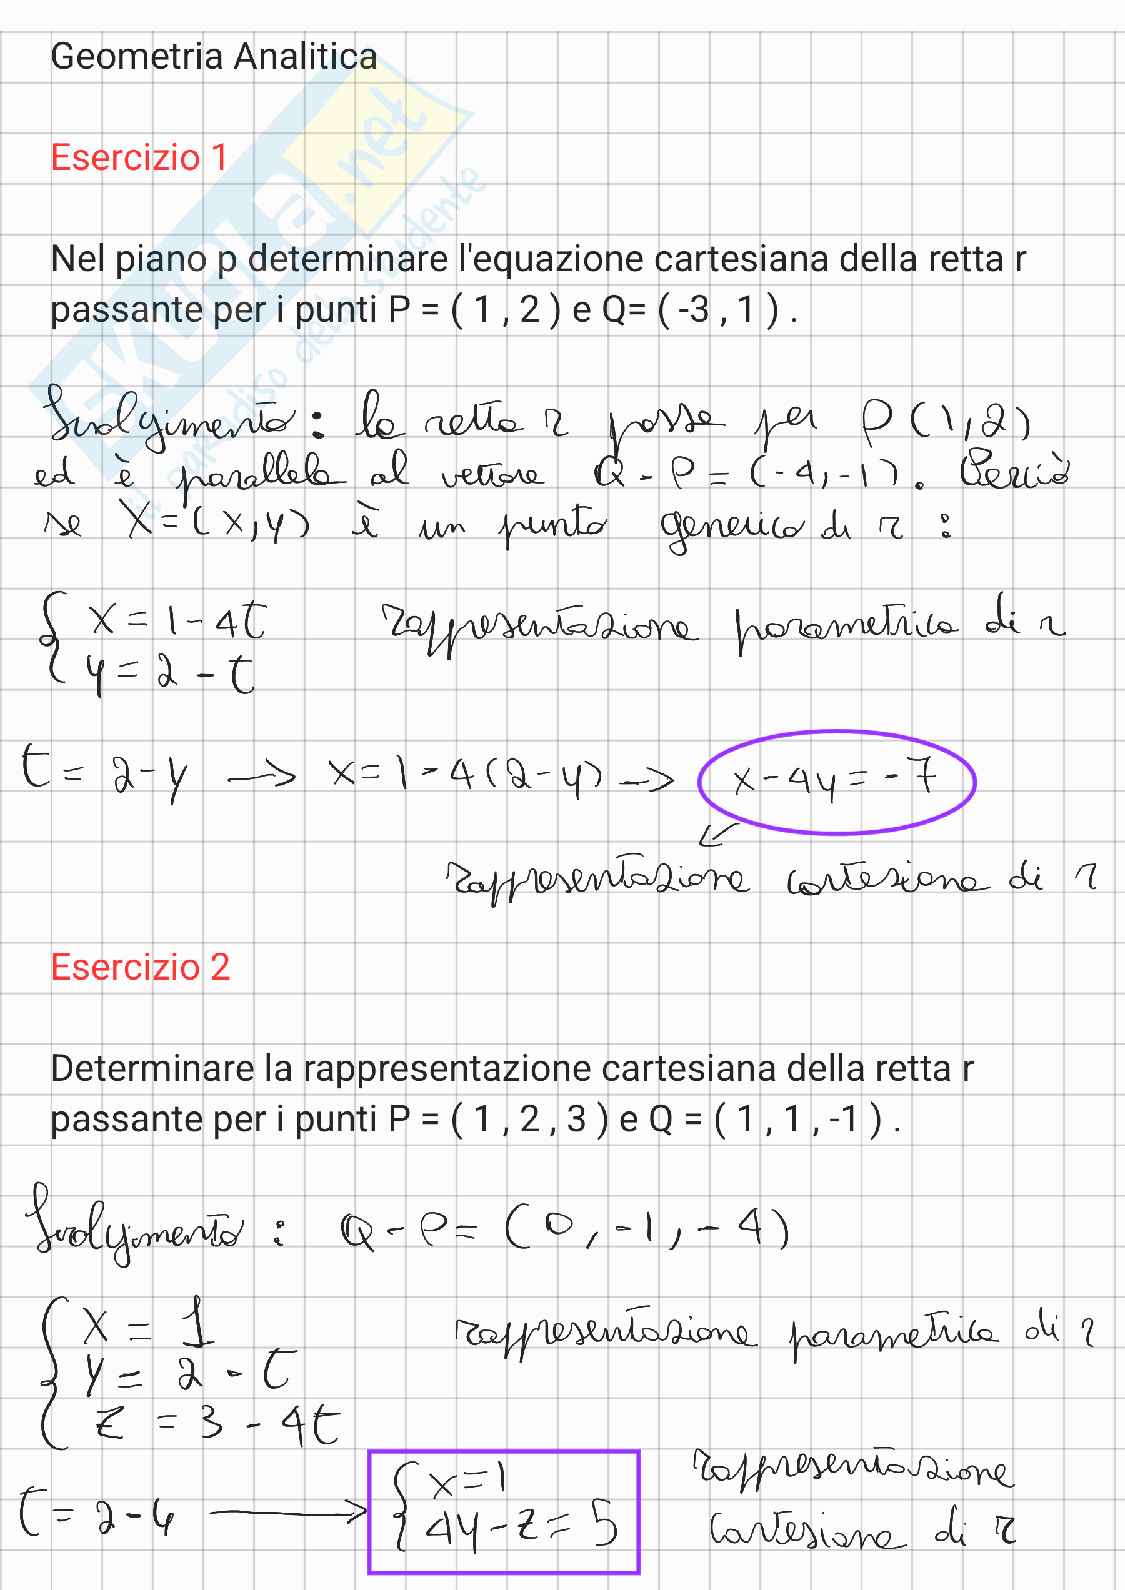 Geometria Analitica
Esercizio 1
Nel piano p determinare l'equazione cartesiana della retta r
passante per i punti P = ( 1 , 2 ) e Q= ( -3 , 1 ) .
Svolgimento: la retta r passa per P (1,2)
ed è parallela al vettore Q - P = (-4,-1). Perciò
se X=(x,y) è un punto generico di r :
{ x = 1-4t rappresentazione parametrica di r
y = 2 - t
t = 2-y → x=1-4(2-y) → x-4y=-7
↙
rappresentazione cartesiana di r
Esercizio 2
Determinare la rappresentazione cartesiana della retta r
passante per i punti P = ( 1 , 2 , 3 ) e Q = ( 1 , 1 , -1 ) .
Svolgimento : Q - P = (0, -1, -4)
{ x = 1 rappresentazione parametrica di r
y = 2 - t
z = 3 - 4t
t = 2-y → { x=1 rappresentazione
4y-z=5 cartesiana di r
SKUOLA.net
il paradiso dello studente